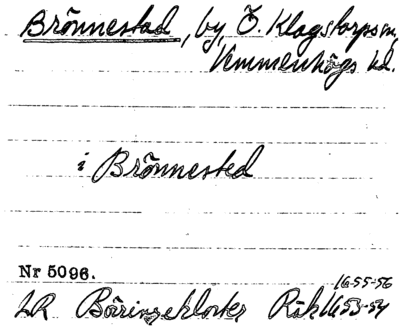 Brönnestad, by, Ö. Klagstorps sn,
Vemmenhögs hd.
i Brönnested
Nr 5096.
1655-56
LR Börringekloster, Räk 1653-54